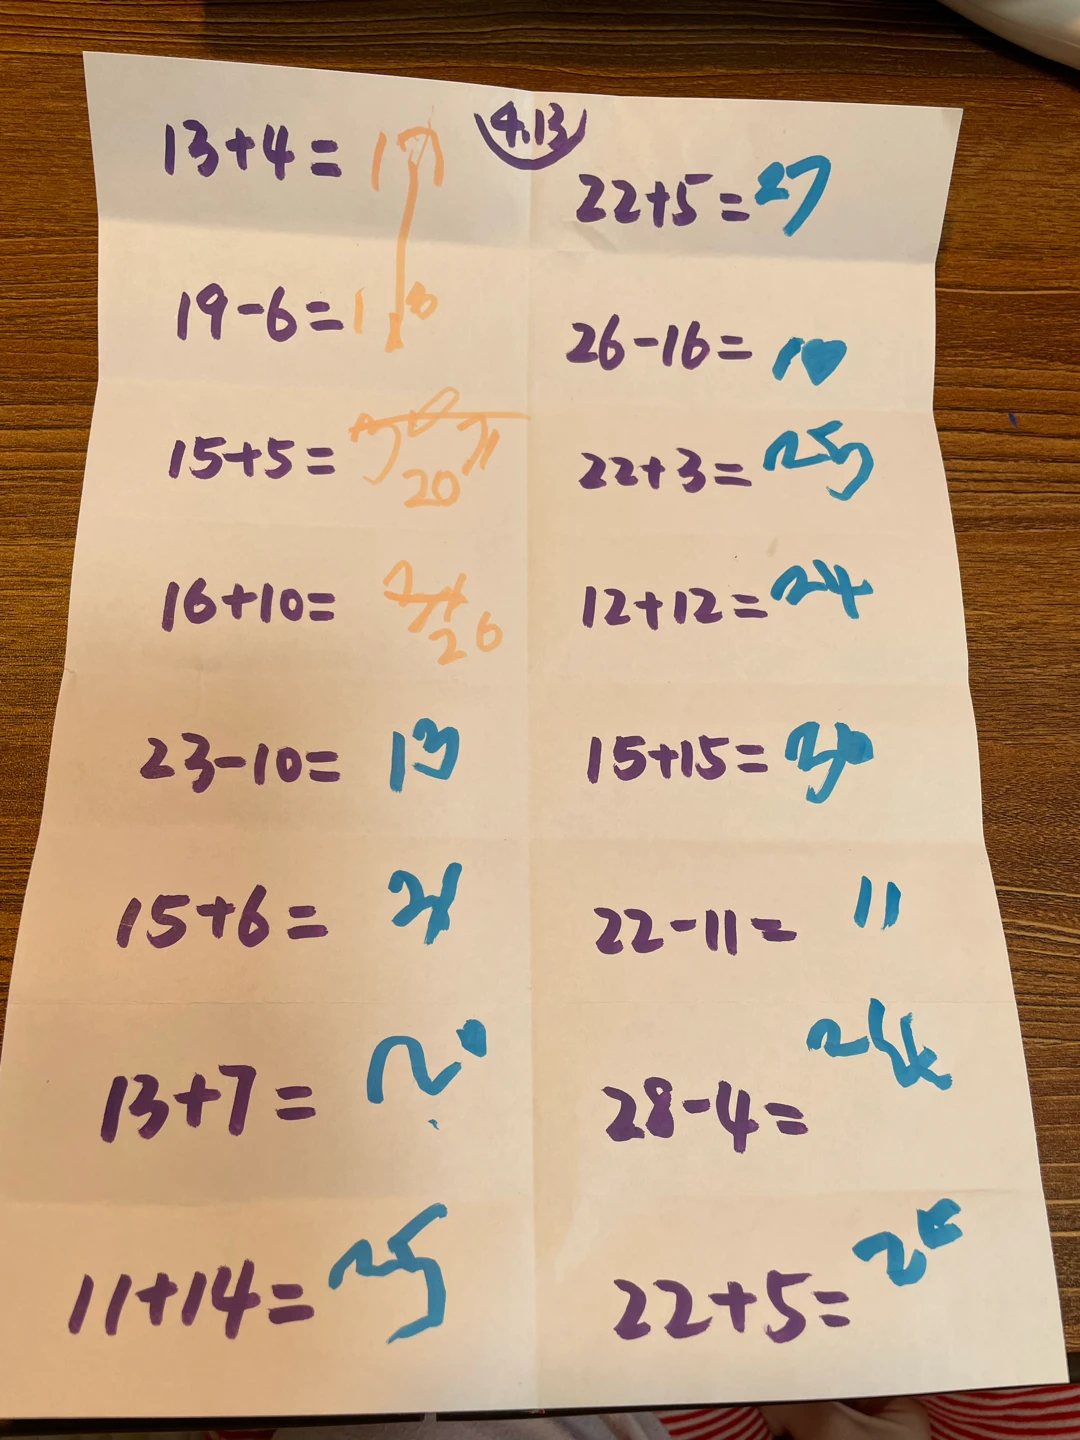 4.13
13+4= 17
22+5=27
19-6=1
26-16= 10
15+5= 20
22+3= 25
16+10= 26
12+12= 24
23-10= 13
15+15= 30
15+6= 21
22-11= 11
13+7= 20
28-4= 24
11+14= 25
22+5= 2